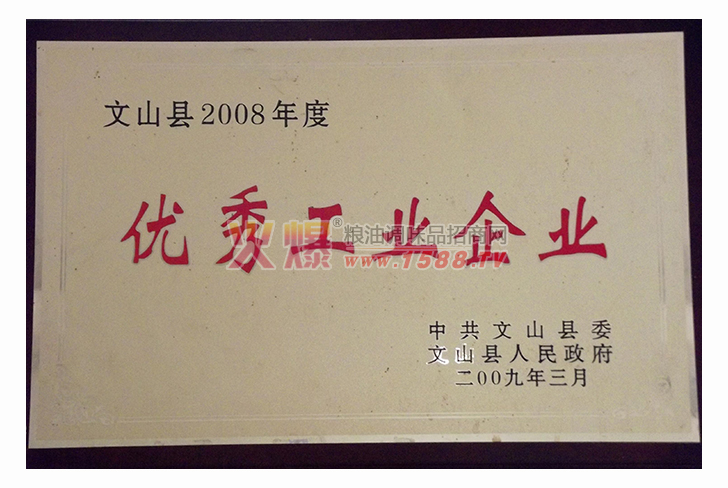 文山县2008年度
优秀工业企业
火爆®粮油调味品招商网
www.1588.tv
中共文山县委
文山县人民政府
二00九年三月